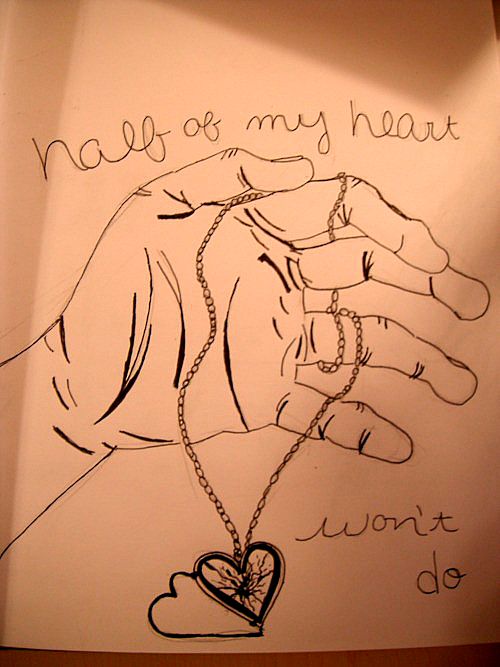 half of my heart
won't
do